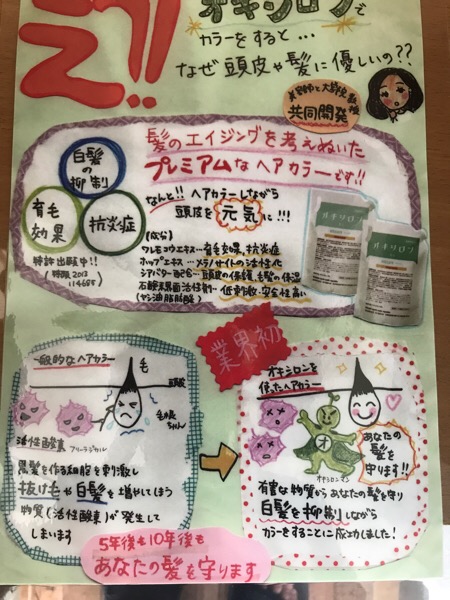 オキシロンで
カラーをすると…
なぜ頭皮や髪に優しいの??
美容師と大学教授
共同開発
髪のエイジングを考えぬいた
プレミアムなヘアカラーです!!
白髪
の
抑制
育毛
効果
抗炎症
特許出願中!!
(特願2013
114685)
なんと!!ヘアカラーしながら
頭皮を元気に!!!
(成分)
ワレモコウエキス…育毛効果、抗炎症
ホップエキス…メラノサイトの活性化
シアバター配合…頭皮の保護、毛髪の保湿
石鹸系界面活性剤…低刺激、安全性高い
(ヤシ油脂肪酸)
オキシロン
オキシロン
業界初
一般的なヘアカラー
毛
頭皮
毛根
ちゃん
活性酸素
フリーラジカル
黒髪を作る細胞を刺激し
抜け毛や白髪を増やしてしまう
物質(活性酸素)が発生して
しまいます
オキシロンを
使ったヘアカラー
オ
オキシロンマン
あなたの
髪を
守ります!!
有害な物質からあなたの髪を守り
白髪を抑制しながら
カラーをすることに成功しました!
5年後も10年後も
あなたの髪を守ります